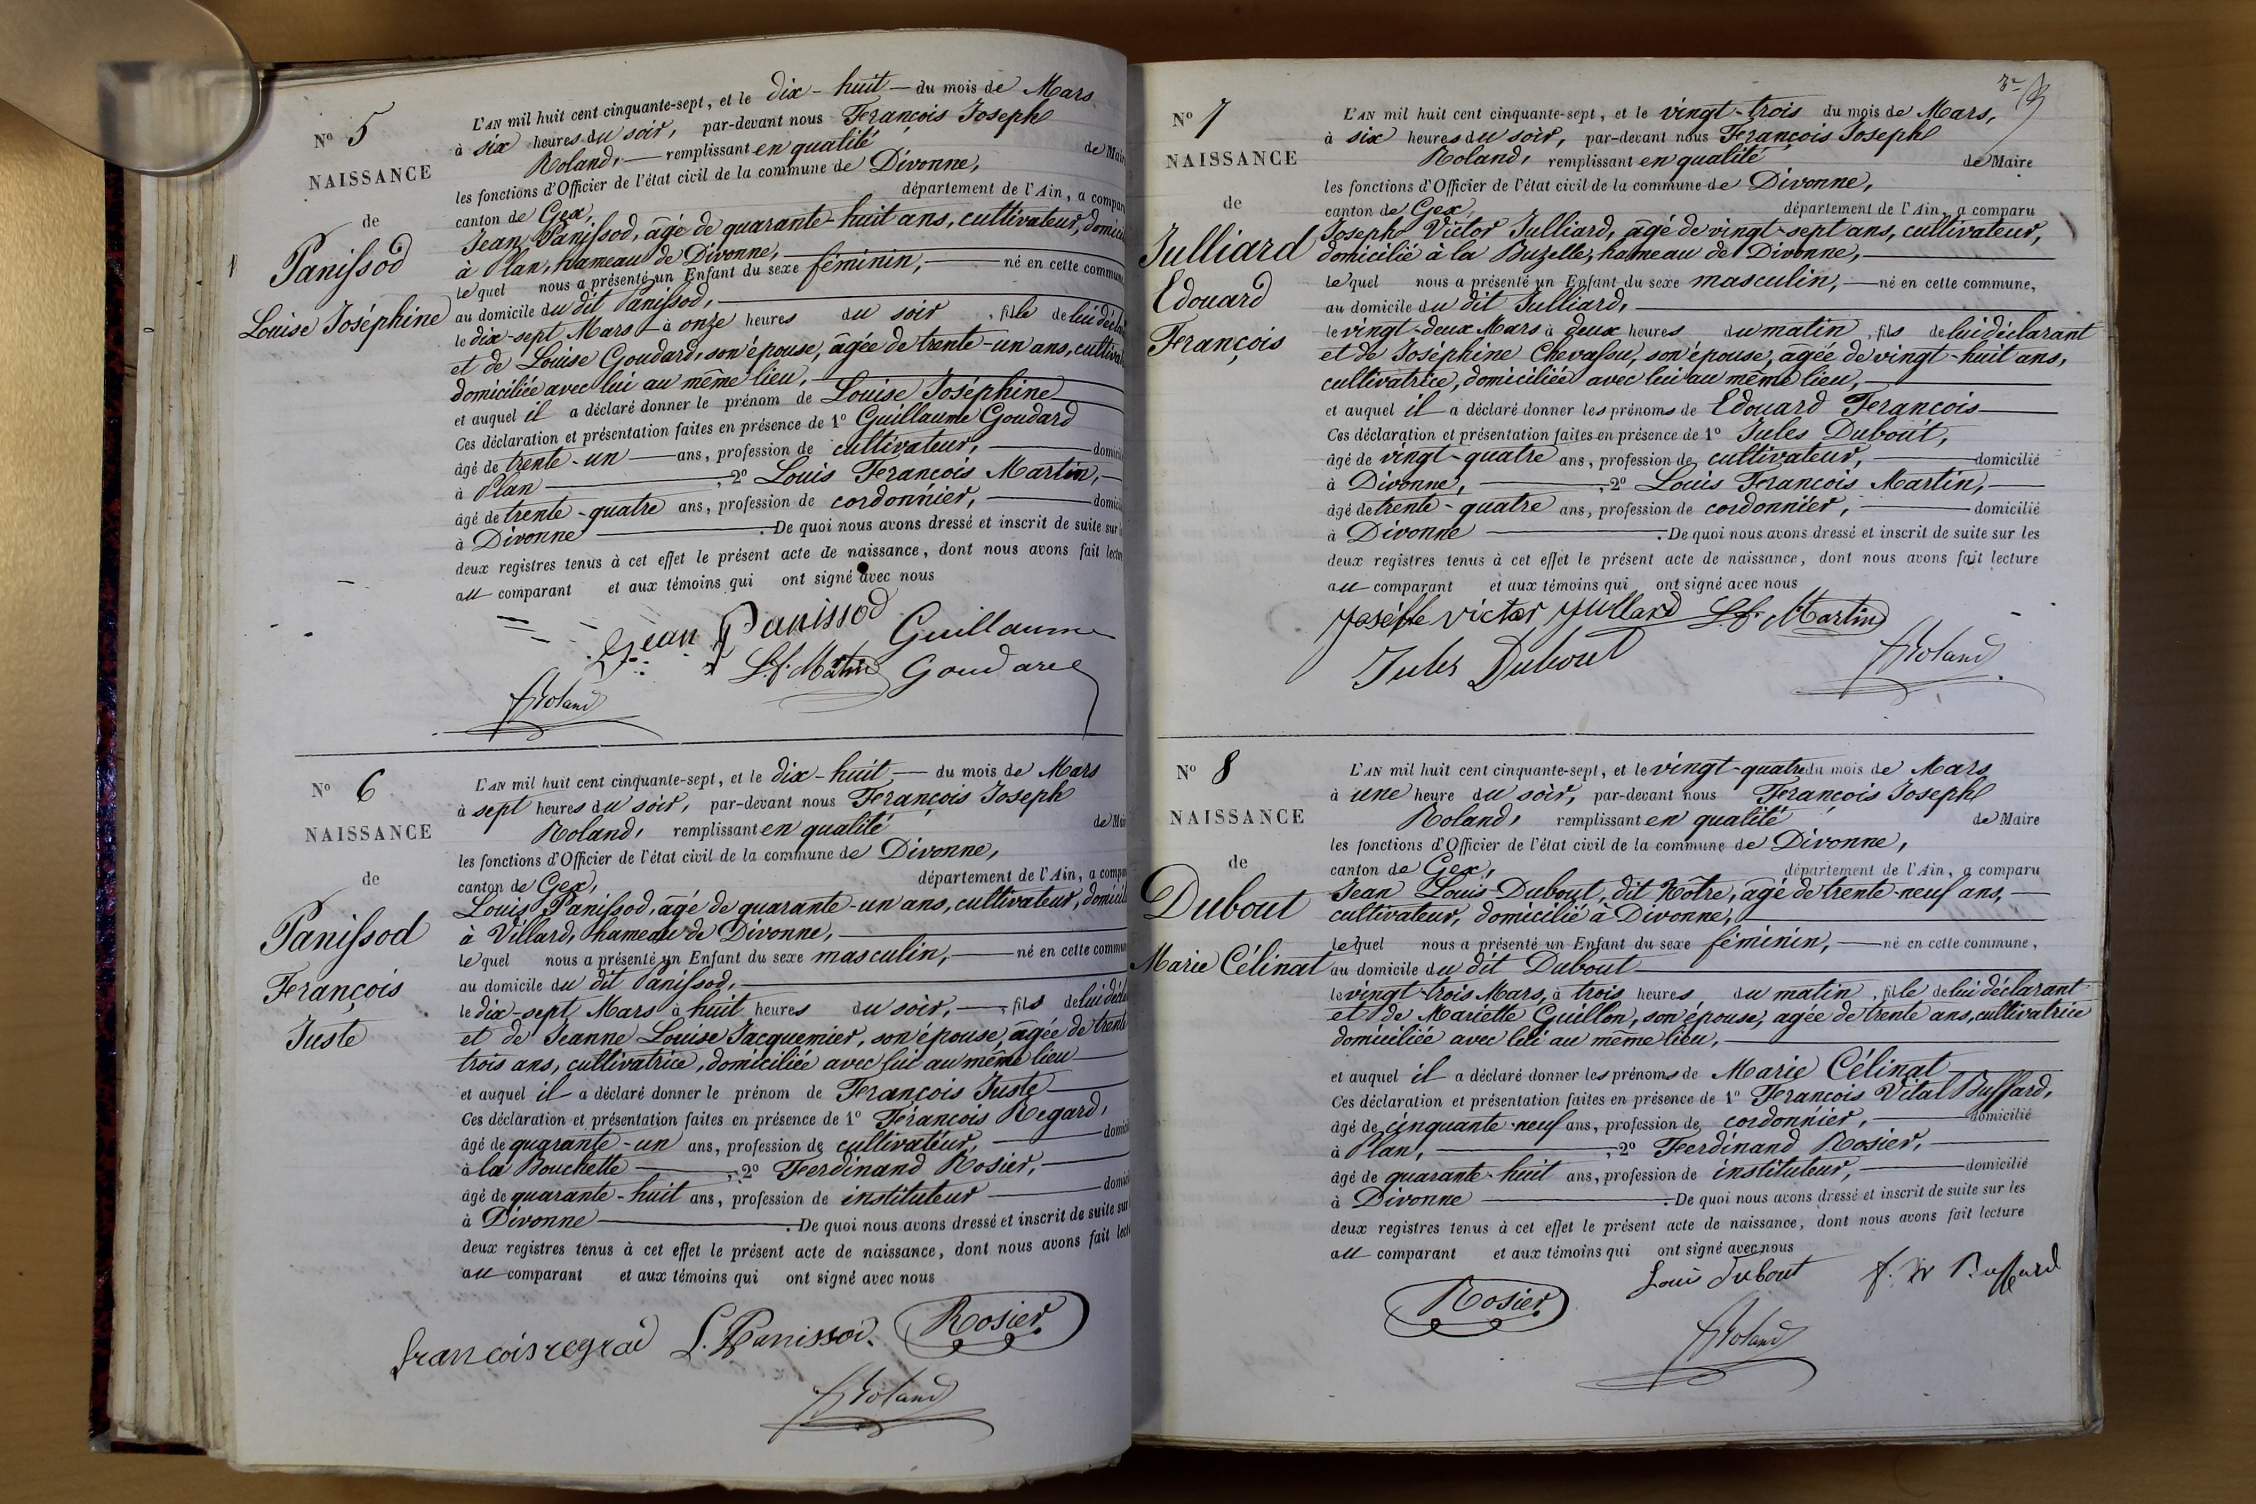 N° 5
NAISSANCE
de
Panissod
Louise Joséphine
L'AN mil huit cent cinquante-sept, et le dix-huit du mois de Mars
à six heures du soir, par-devant nous François Joseph
Roland, remplissant en qualité de Mai
les fonctions d'Officier de l'état civil de la commune de Divonne,
canton de Gex, département de l'Ain, a compar
Jean Panissod, âgé de quarante-huit ans, cultivateur, domicil
à Plan, hameau de Divonne,
lequel nous a présenté un Enfant du sexe féminin, né en cette commune
au domicile du dit Panissod,
le dix-sept Mars à onze heures du soir, fille de lui décla
et de Louise Goudard, son épouse, âgée de trente-un ans, cultiva
domiciliée avec lui au même lieu,
et auquel il a déclaré donner le prénom de Louise Joséphine
Ces déclaration et présentation faites en présence de 1° Guillaume Goudard
âgé de trente-un ans, profession de cultivateur, domicil
à Plan, 2° Louis François Martin,
âgé de trente-quatre ans, profession de cordonnier, domicil
à Divonne. De quoi nous avons dressé et inscrit de suite sur l
deux registres tenus à cet effet le présent acte de naissance, dont nous avons fait lectu
au comparant et aux témoins qui ont signé avec nous
Jean Panissod Guillaume
L. f. Martin Goudard
f Roland
N° 6
NAISSANCE
de
Panissod
François
Juste
L'AN mil huit cent cinquante-sept, et le dix-huit du mois de Mars
à sept heures du soir, par-devant nous François Joseph
Roland, remplissant en qualité de Mai
les fonctions d'Officier de l'état civil de la commune de Divonne,
canton de Gex, département de l'Ain, a compa
Louis Panissod, âgé de quarante-un ans, cultivateur, domicil
à Villard, hameau de Divonne,
lequel nous a présenté un Enfant du sexe masculin, né en cette commun
au domicile du dit Panissod,
le dix-sept Mars à huit heures du soir, fils de lui décla
et de Jeanne Louise Jacquemier, son épouse, âgée de trente
trois ans, cultivatrice, domiciliée avec lui au même lieu
et auquel il a déclaré donner le prénom de François Juste
Ces déclaration et présentation faites en présence de 1° François Regard,
âgé de quarante-un ans, profession de cultivateur, domici
à la Bouchette, 2° Ferdinand Rosier,
âgé de quarante-huit ans, profession de instituteur domici
à Divonne. De quoi nous avons dressé et inscrit de suite sur
deux registres tenus à cet effet le présent acte de naissance, dont nous avons fait lect
au comparant et aux témoins qui ont signé avec nous
francois regrad L. Panissod. Rosier
f Roland
N° 7
NAISSANCE
de
Julliard
Edouard
François
L'AN mil huit cent cinquante-sept, et le vingt-trois du mois de Mars,
à six heures du soir, par-devant nous François Joseph
Roland, remplissant en qualité de Maire
les fonctions d'Officier de l'état civil de la commune de Divonne,
canton de Gex, département de l'Ain, a comparu
Joseph Victor Julliard, âgé de vingt-sept ans, cultivateur,
domicilié à la Buzelle, hameau de Divonne,
lequel nous a présenté un Enfant du sexe masculin, né en cette commune,
au domicile du dit Julliard,
le vingt-deux Mars à deux heures du matin, fils de lui déclarant
et de Joséphine Chevassu, son épouse, âgée de vingt-huit ans,
cultivatrice, domiciliée avec lui au même lieu,
et auquel il a déclaré donner les prénoms de Edouard François
Ces déclaration et présentation faites en présence de 1° Jules Dubout,
âgé de vingt-quatre ans, profession de cultivateur, domicilié
à Divonne, 2° Louis François Martin,
âgé de trente-quatre ans, profession de cordonnier, domicilié
à Divonne. De quoi nous avons dressé et inscrit de suite sur les
deux registres tenus à cet effet le présent acte de naissance, dont nous avons fait lecture
au comparant et aux témoins qui ont signé avec nous
Joséphe Victor Jullard L. f. Martin
Jules Dubout f Roland
N° 8
NAISSANCE
de
Dubout
Marie Célinat
L'AN mil huit cent cinquante-sept, et le vingt-quatre du mois de Mars
à une heure du soir, par-devant nous François Joseph
Roland, remplissant en qualité de Maire
les fonctions d'Officier de l'état civil de la commune de Divonne,
canton de Gex, département de l'Ain, a comparu
Jean Louis Dubout, dit Nôtre, âgé de trente-neuf ans,
cultivateur, domicilié à Divonne,
lequel nous a présenté un Enfant du sexe féminin, né en cette commune,
au domicile du dit Dubout
le vingt-trois Mars, à trois heures du matin, fille de lui déclarant
et de Mariette Guillon, son épouse, agée de trente ans, cultivatrice
domiciliée avec lui au même lieu,
et auquel il a déclaré donner les prénoms de Marie Célinat
Ces déclaration et présentation faites en présence de 1° François Vital Buffard,
âgé de cinquante-neuf ans, profession de cordonnier, domicilié
à Plan, 2° Ferdinand Rosier,
âgé de quarante-huit ans, profession de instituteur, domicilié
à Divonne. De quoi nous avons dressé et inscrit de suite sur les
deux registres tenus à cet effet le présent acte de naissance, dont nous avons fait lecture
au comparant et aux témoins qui ont signé avec nous
Rosier Loui Dubout Buffard
f Roland